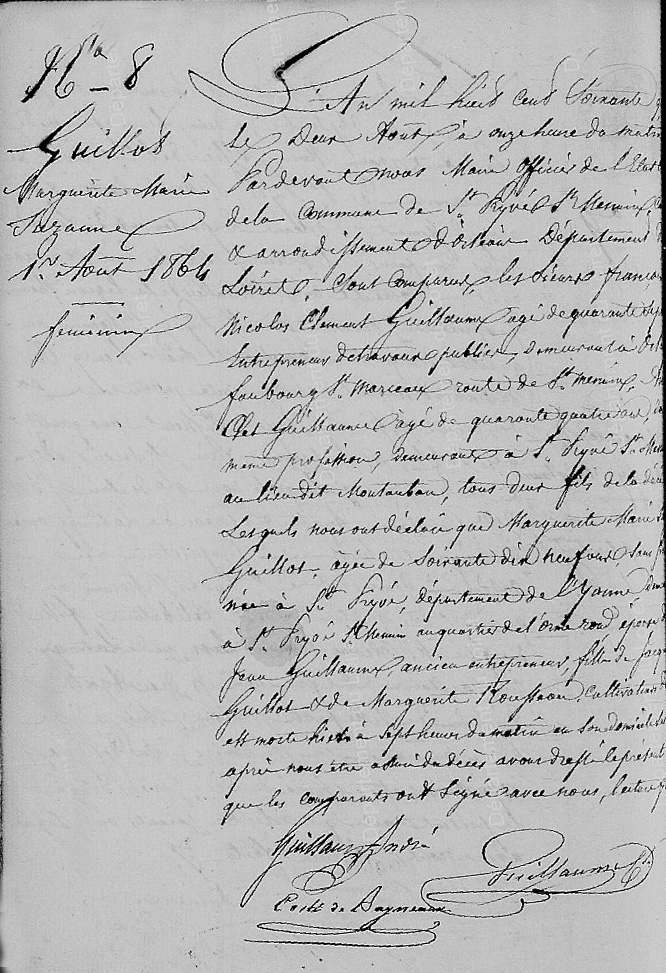 Nº 8
Guillot
Marguerite Marie
Suzanne
1er Aout 1864
feminin
L'An mil huit cent Soixante
le Deux Aout, à onze heure du matin
Pardevant nous Maire Officier de l'Etat
de la Commune de St. Pryvé St Mesmin,
& arrondissement d'Orléans Département
Loiret, Sont comparus, les Sieurs françois
Nicolas Clement Guillaume agé de quarante sept
Entrepreneur de travaux publics, demeurant à
faubourg St. Marceau route de St. mesmin,
Guillaume agé de quarante quatre ans,
même profession, demeurant à St. Pryvé St. Mes
au lieu dit Montauban, tous deux fils de la déc
Lesquels nous ont déclaré que Marguerite Marie
Guillot, agée de Soixante dix neuf ans, sans
née à St. Pryvé, département de l'Yonne dem
à St. Pryvé St. Mesmin au quartier de l'orme rond, épouse
Jean Guillaume, ancien entrepreneur, fille de Jacq
Guillot & de Marguerite Rousseau, cultivateurs
est morte hier à sept heures du matin en son domicile
après nous être assuré du décès avons dressé le présent
que les comparants ont Signé avec nous, lecture
Guillaume André
Guillaume
Coste de Bagneaux